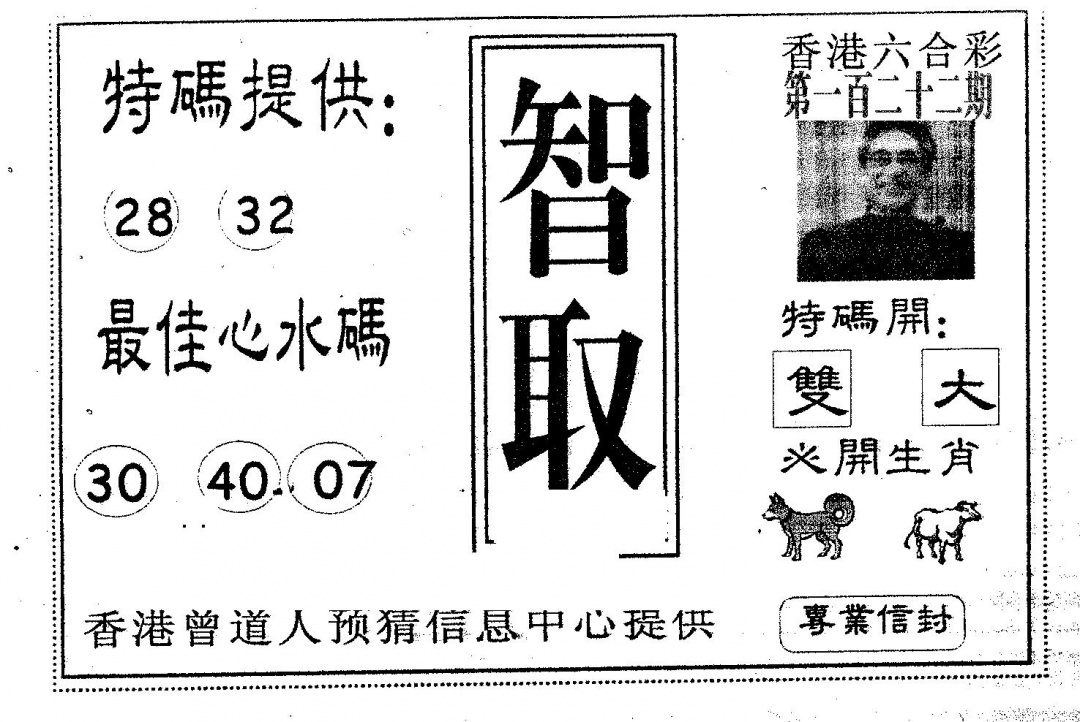 特碼提供：
28 32
最佳心水碼
30 40 07
智取
香港六合彩
第一百二十二期
特碼開：
雙 大
必開生肖
香港曾道人预猜信息中心提供
專業信封